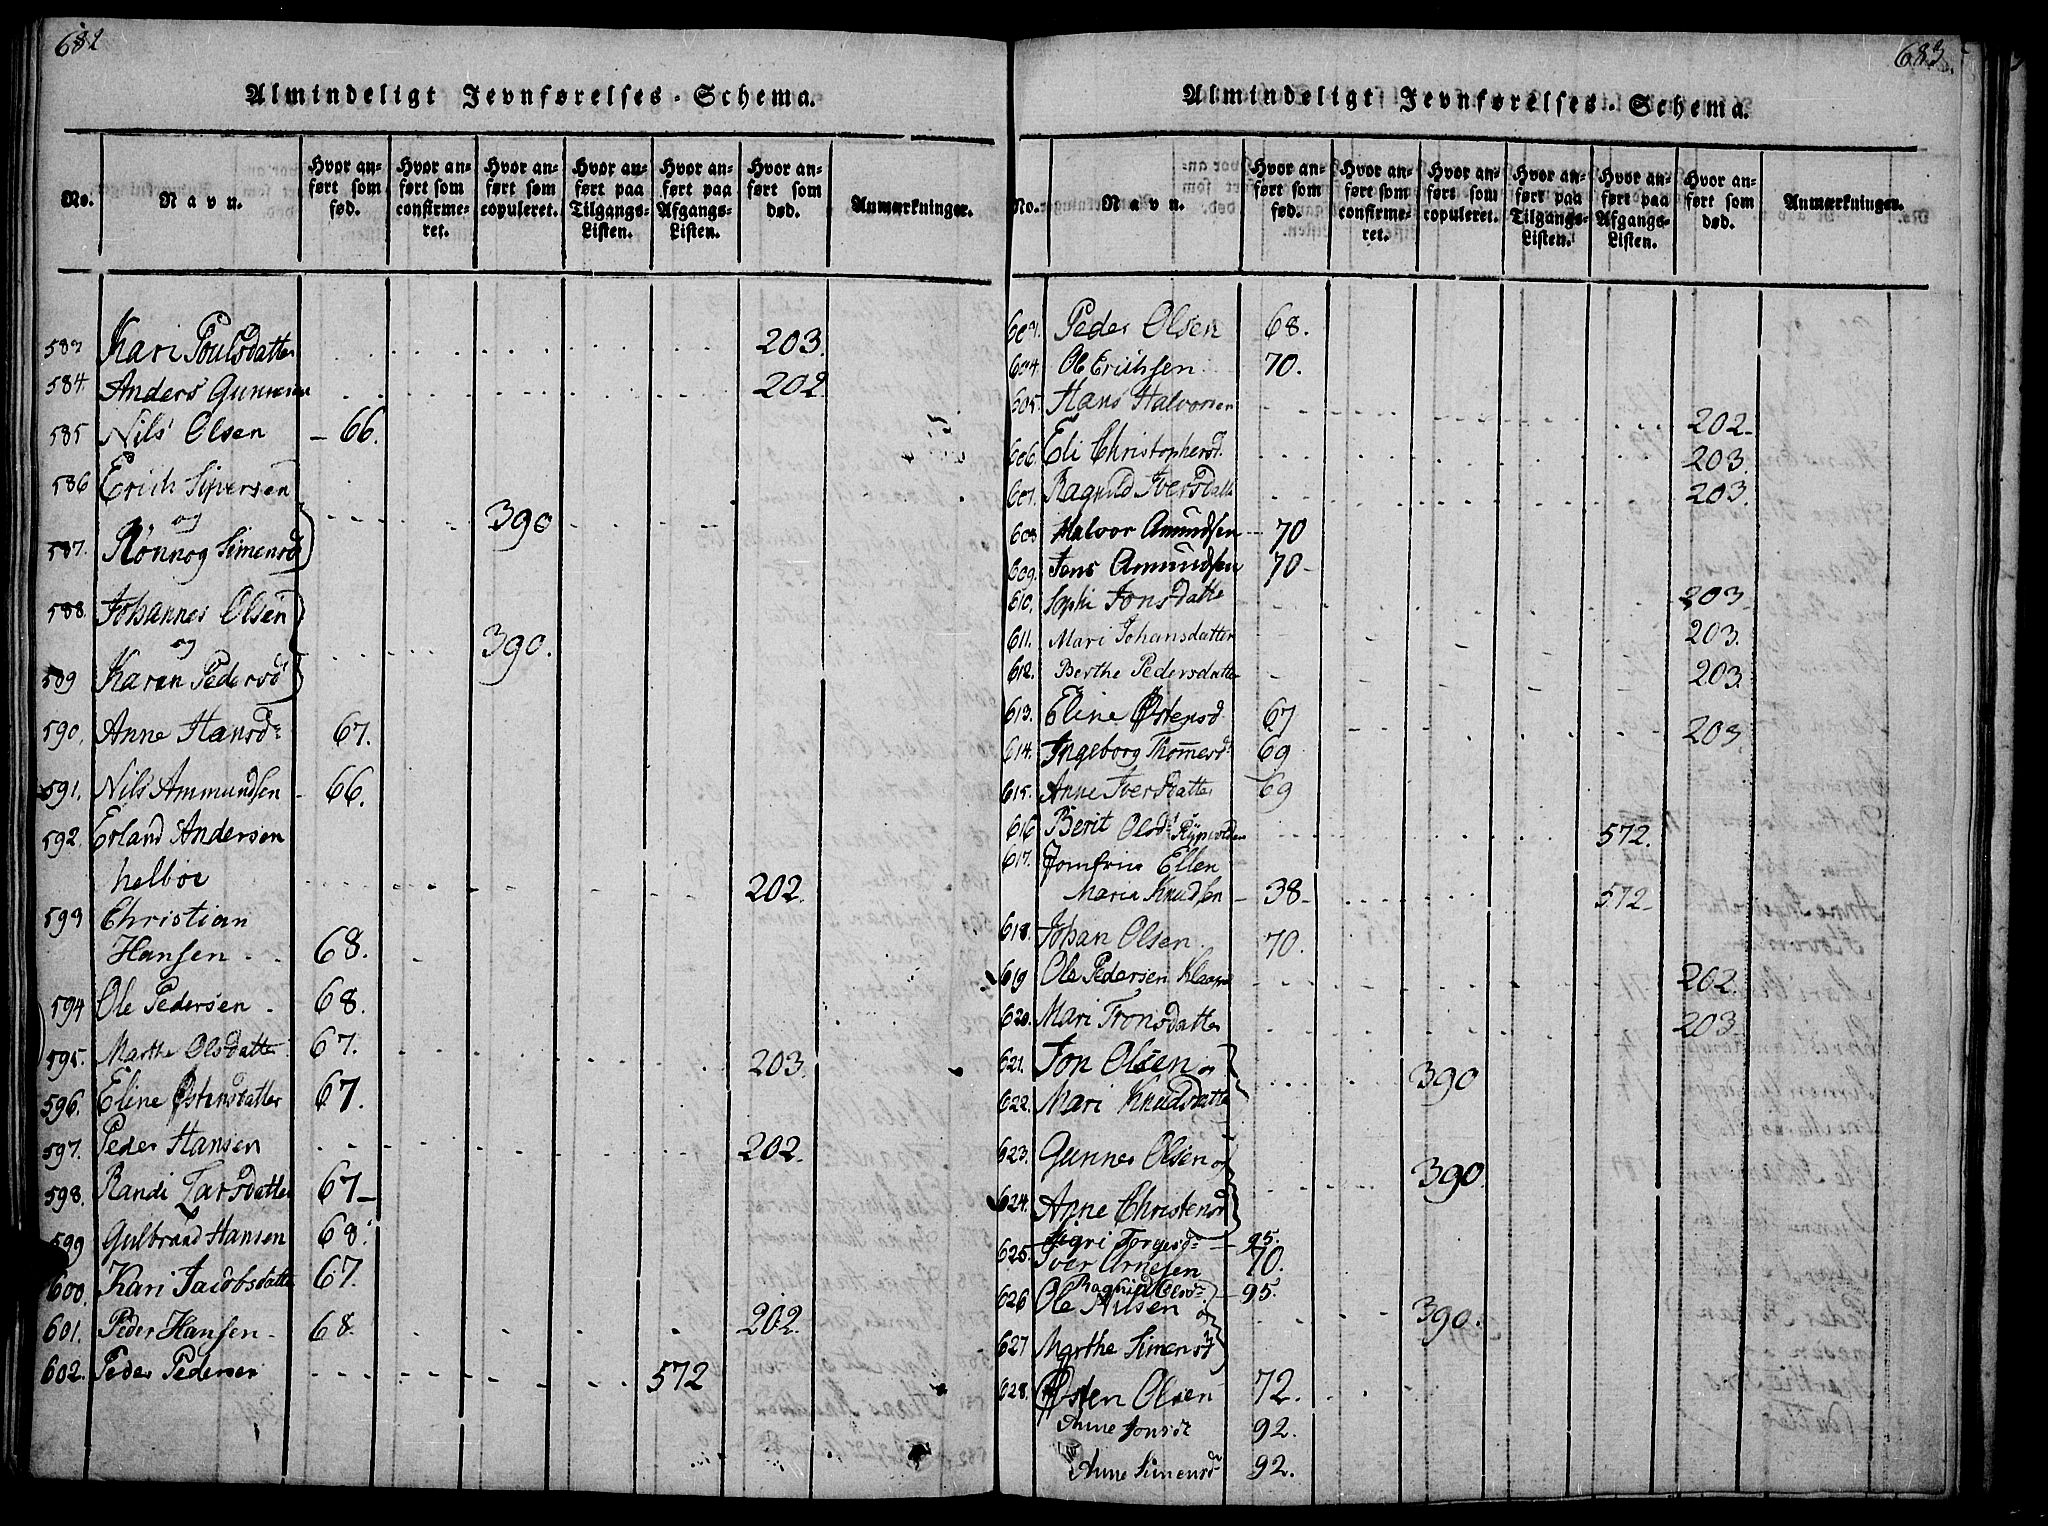 682
Almindeligt Jevnførelses-Schema.
No.
Navn.
Hvor anført som fød.
Hvor anført som confirmeret.
Hvor anført som copuleret.
Hvor anført paa Tilgangs-Listen.
Hvor anført paa Afgangs-Listen.
Hvor anført som død.
Anmærkninger.
583 Kari Poulsdatter 203.
584 Anders Gunnersen 202
585 Nils Olsen 66.
586 Erich Siversen
og 390
587. Rønnog Simensd
588. Johannes Olsen
og 390.
589 Karen Pedersd
590. Anne Hansdr 67.
591. Nils Ammundsen 66.
592. Erland Andersen
helboe 202.
593 Christian
Hansen 68.
594 Ole Pedersen 68.
595. Marthe Olsdatter 67. 203.
596. Eline Østensdatter 67.
597. Peder Hansen 202.
598. Randi Larsdatter 67
599 Gulbrand Hansen 68.
600. Kari Jacobsdatter 67.
601. Peder Hansen 68. 202.
602. Peder Pedersen 572
683.
Almindeligt Jevnførelses-Schema.
No.
Navn.
Hvor anført som fød.
Hvor anført som confirmeret.
Hvor anført som copuleret.
Hvor anført paa Tilgangs-Listen.
Hvor anført paa Afgangs-Listen.
Hvor anført som død.
Anmærkninger.
603. Peder Olsen 68.
604. Ole Erichsen 70.
605. Hans Halvorsen 202
606. Eli Christophersd. 203.
607. Ragnild Iversdatter 203.
608 Halvor Amundsen 70
609. Jens Amundsen 70
610. Sophi Jonsdatter 203
611. Mari Johansdatter 203.
612. Berthe Pedersdatter 203.
613. Eline Østensd 67 203.
614. Ingeborg Thommesdr 69
615. Anne Iversdatter 69
616 Berit Olsdr 572.
617. Jomfrue Ellen
Maria Knudsen 38 572
618. Johan Olsen 70.
619 Ole Pedersen 202.
620. Mari Tronsdatter 203
621. Jon Olsen og 390
622. Mari Knudsdatter
623. Gunner Olsen og 390.
624. Anne Christensd
Sigri Torgesdr 95.
625. Iver Arnesen 70.
Ragnild Olsdr 95.
626 Ole Nilsen og 390.
627 Marthe Simensd
628. Østen Olsen 72.
Anne Jonsdr 92.
Anne Simensdr 92.